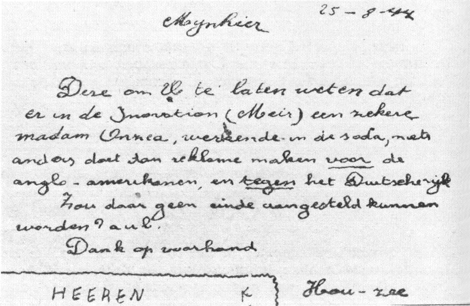 25-8-44
Mynhier
Dere om Ub te laten weten dat
er in de Inovation (Meir) een zekere
madam Onnea, werkende in de soda, niets
anders doet dan reklame maken voor de
anglo-amerikenen, en tegen het Duitscherijk
Zou daar geen einde aangesteld kunnen
worden? aub.
Dank op voorhand
Hou-zee
HEEREN K